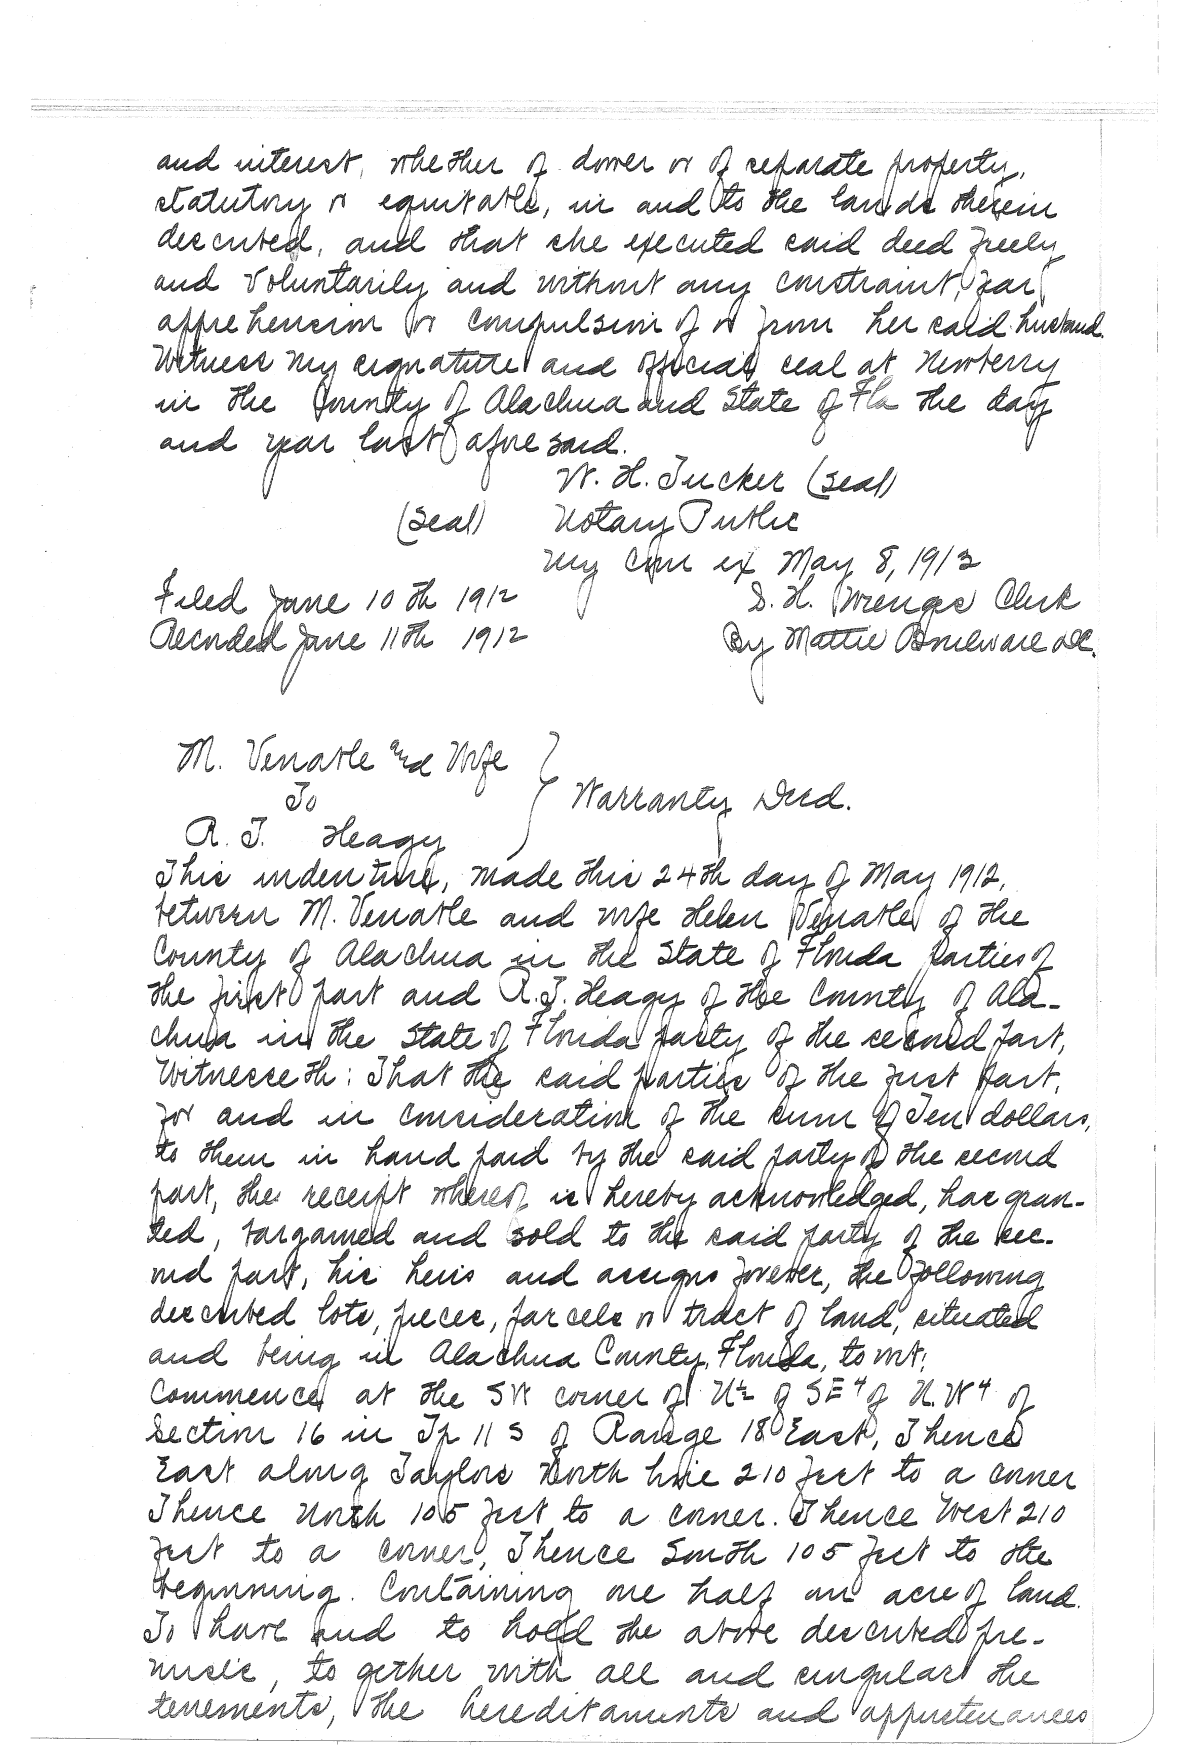 and interest, whether of dower or of separate property,
statutory or equitable, in and to the lands therein
described, and that she executed said deed freely
and voluntarily and without any constraint, fear
apprehension or compulsion of or from her said husband.
Witness my signature and official seal at Newberry
in the County of Alachua and State of Fla the day
and year last afore said.
W. H. Tucker (Seal)
(Seal) Notary Public
my Com ex May 8, 1913
Filed June 10th 1912 S. H. Wienges Clerk
Recorded June 11th 1912 By Mattie Boulware DC.
M. Venable and Wife
To
Warranty Deed.
R. J. Heagy
This indenture, made this 24th day of May 1912,
between M. Venable and wife Helen Venable of the
County of Alachua in the State of Florida parties of
the first part and R. J. Heagy of the County of Ala-
chua in the State of Florida party of the second part,
Witnesseth: That the said parties of the first part,
for and in consideration of the sum of Ten dollars,
to them in hand paid by the said party of the second
part, the receipt whereof is hereby acknowledged, has gran-
ted, bargained and sold to the said party of the sec-
ond part, his heirs and assigns forever, the following
described lots, pieces, parcels or tract of land, situated
and being in Alachua County, Florida, to wit;
Commence at the SW corner of N½ of SE4 of N.W4 of
Section 16 in Tp 11 S of Range 18 East, Thence
East along Taylors North line 210 feet to a corner
Thence North 105 feet to a corner. Thence West 210
feet to a corner, Thence South 105 feet to the
beginning. Containing one half an acre of land.
To have and to hold the above described pre-
mises, to gether with all and singular the
tenements, the hereditaments and appurtenances